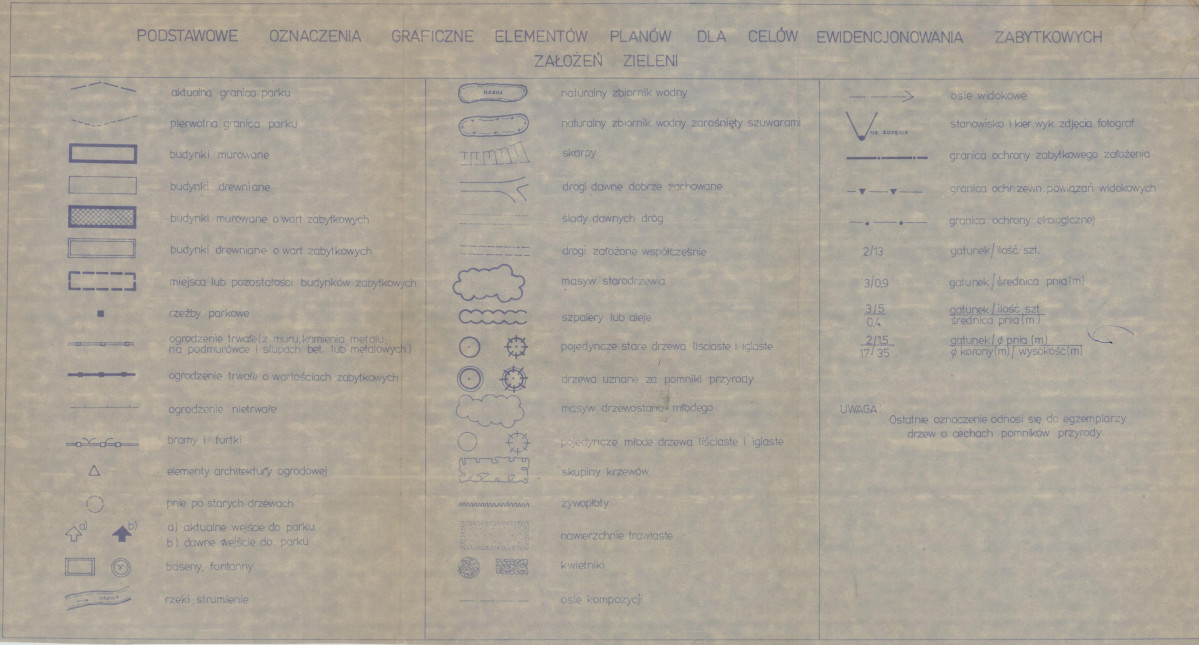 PODSTAWOWE OZNACZENIA GRAFICZNE ELEMENTÓW PLANÓW DLA CELÓW EWIDENCJONOWANIA ZABYTKOWYCH
ZAŁOŻEŃ ZIELENI
aktualna granica parku
pierwotna granica parku
budynki murowane
budynki drewniane
budynki murowane o wart. zabytkowych
budynki drewniane o wart. zabytkowych
miejsca lub pozostałości budynków zabytkowych
rzeźby parkowe
ogrodzenie trwałe (z muru, kamienia, metalu,
na podmurówce i słupach bet. lub metalowych)
ogrodzenie trwałe o wartościach zabytkowych
ogrodzenie nietrwałe
bramy i furtki
elementy architektury ogrodowej
pnie po starych drzewach
a) b)
a) aktualne wejście do parku
b) dawne wejście do parku
baseny, fontanny
rzeki strumienie
naturalny zbiornik wodny
naturalny zbiornik wodny zarośnięty szuwarami
skarpy
drogi dawne dobrze zachowane
ślady dawnych dróg
drogi założone współcześnie
masyw starodrzewia
szpalery lub aleje
pojedyncze stare drzewa liściaste i iglaste
drzewa uznane za pomniki przyrody
masyw drzewostanu młodego
pojedyncze młode drzewa liściaste i iglaste
skupiny krzewów
żywopłoty
nawierzchnie trawiaste
kwietniki
osie kompozycji
osie widokowe
NR. ZDJĘCIA
stanowisko i kier. wyk. zdjęcia fotograf.
granica ochrony zabytkowego założenia
granica ochr. zewn. powiązań widokowych
granica ochrony ekologicznej
2/13 gatunek/ilość szt.
3/0,9 gatunek/średnica pnia(m)
3/5 gatunek/ilość szt.
0,4 średnica pnia(m)
2/1,5 gatunek/ø pnia (m)
17/35 ø korony(m)/wysokość(m)
UWAGA
Ostatnie oznaczenie odnosi się do egzemplarzy
drzew o cechach pomników przyrody.